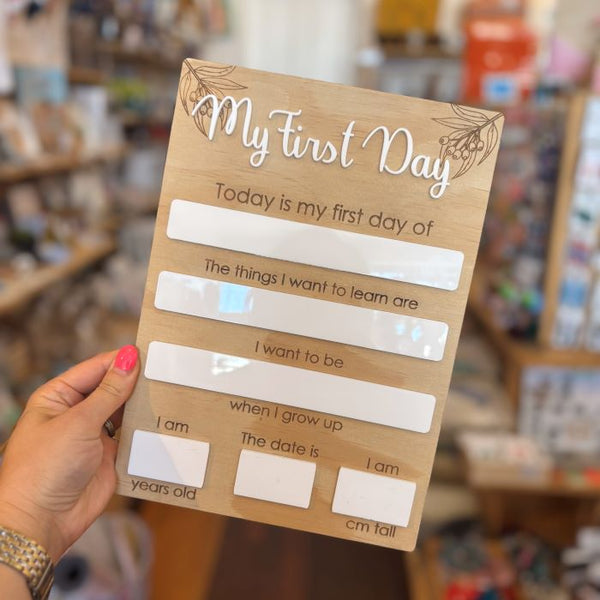 My First Day
Today is my first day of
The things I want to learn are
I want to be
when I grow up
I am
The date is
I am
years old
cm tall